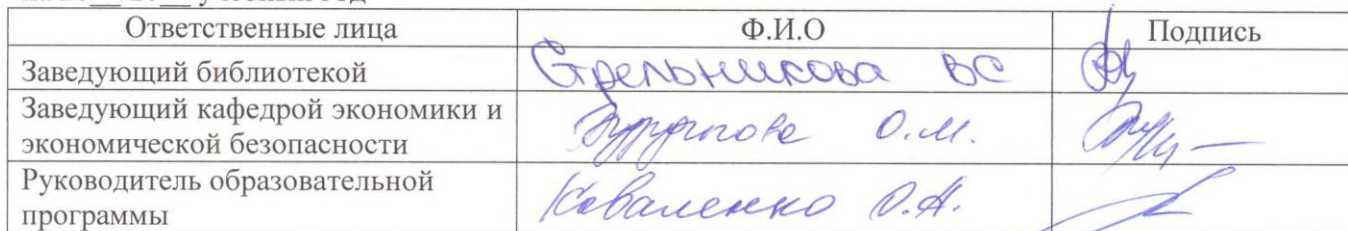 Ответственные лица Ф.И.О Подпись
Заведующий библиотекой Стрельникова ВС
Заведующий кафедрой экономики и
экономической безопасности О.М.
Руководитель образовательной
программы Коваленко О.А.